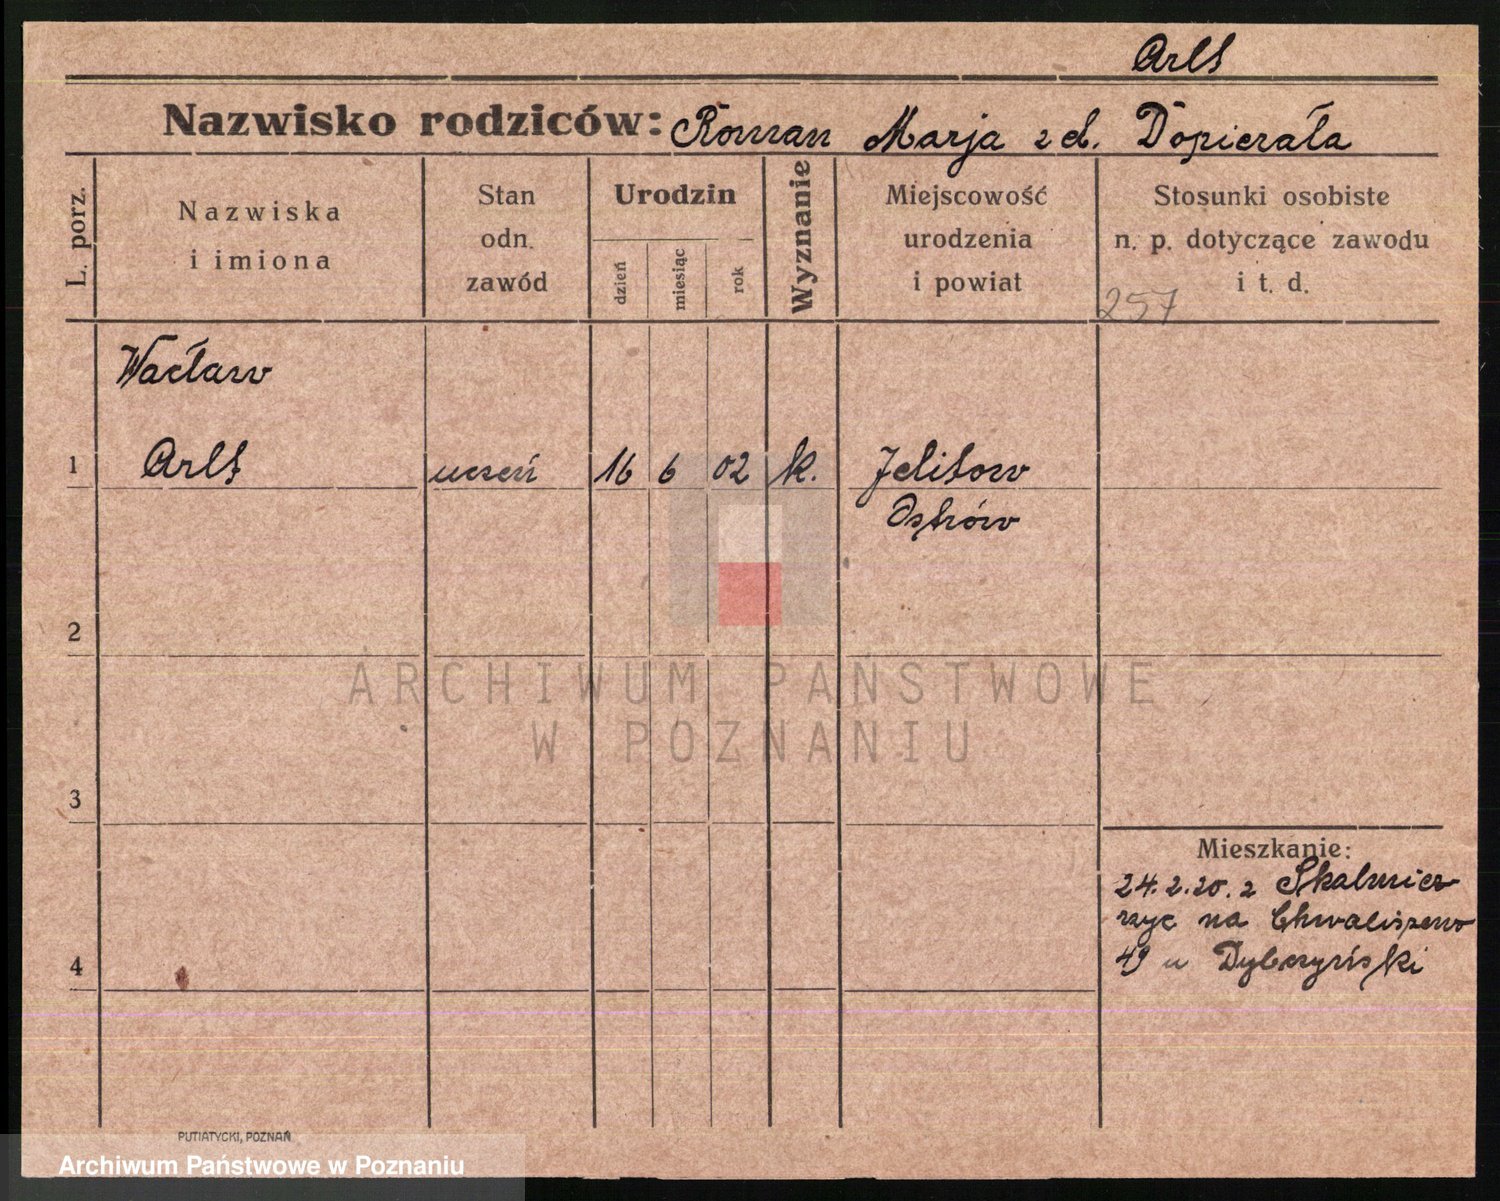 Arlt
Nazwisko rodziców: Roman Marja z d. Dopierała
L. porz.
Nazwiska
i imiona
Stan
odn.
zawód
Urodzin
dzień
miesiąc
rok
Wyznanie
Miejscowość
urodzenia
i powiat
Stosunki osobiste
n. p. dotyczące zawodu
i t. d.
257
Wacław
1 Arlt uczeń 16 6 02 k. Jelitow
Ostrów
2
ARCHIWUM PAŃSTWOWE
W POZNANIU
3
Mieszkanie:
24.2.20. z Skalmier
zyc na Chwaliszewo
4 49 u Dybczyński
PUTIATYCKI, POZNAŃ
Archiwum Państwowe w Poznaniu